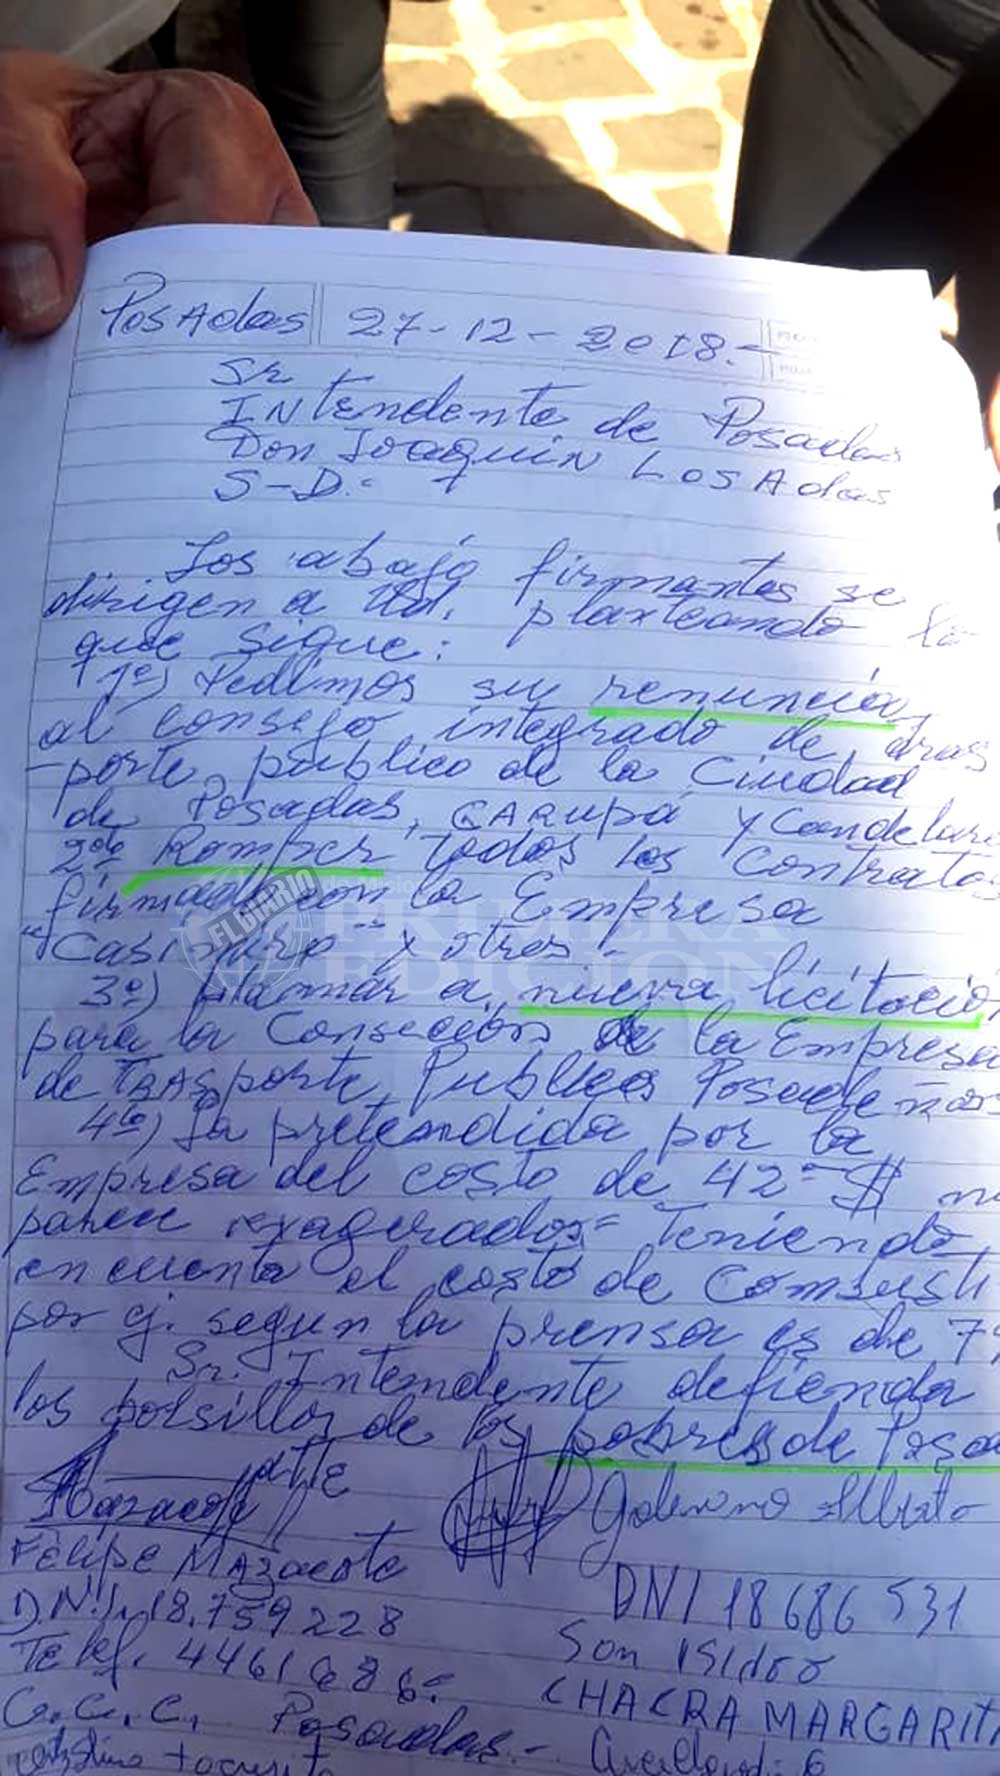 Posadas 27-12-2018.-
Sr
Intendente de Posadas
Don Joaquin Losadas
S-D.-
Los abajo firmantes se
dirigen a Ud. planteando lo
que sigue:
1º) Pedimos su renuncia,
al consejo integrado de tras
-porte, público de la Ciudad
de Posadas, GARUPA y Candelar
2do Romper todos los Contratos
firmado con la Empresa
"Casimiro" y otros.-
3º) llamar a nueva licitacion
para la Conseción de la Empresa
de TRASporte Publicos Posadeños
4to) La pretendida por la
Empresa del costo de 42-$ n
parece exagerados= Teniendo
en cuenta el costo de Combusti
por ej. segun la prensa es de 7%
Sr. Intendente defienda
los bolsillos de los pobres de Posa
atte
Mazacote
Galeano Alberto
Felipe Mazacote
DNI 18686531
D.N.I. 18.759228
San ISIdro
Telef. 4461686-
CHACRA MARGARITA
C.C.C. Posadas.-
6
EL DIARIO
PRIMERA
EDICION